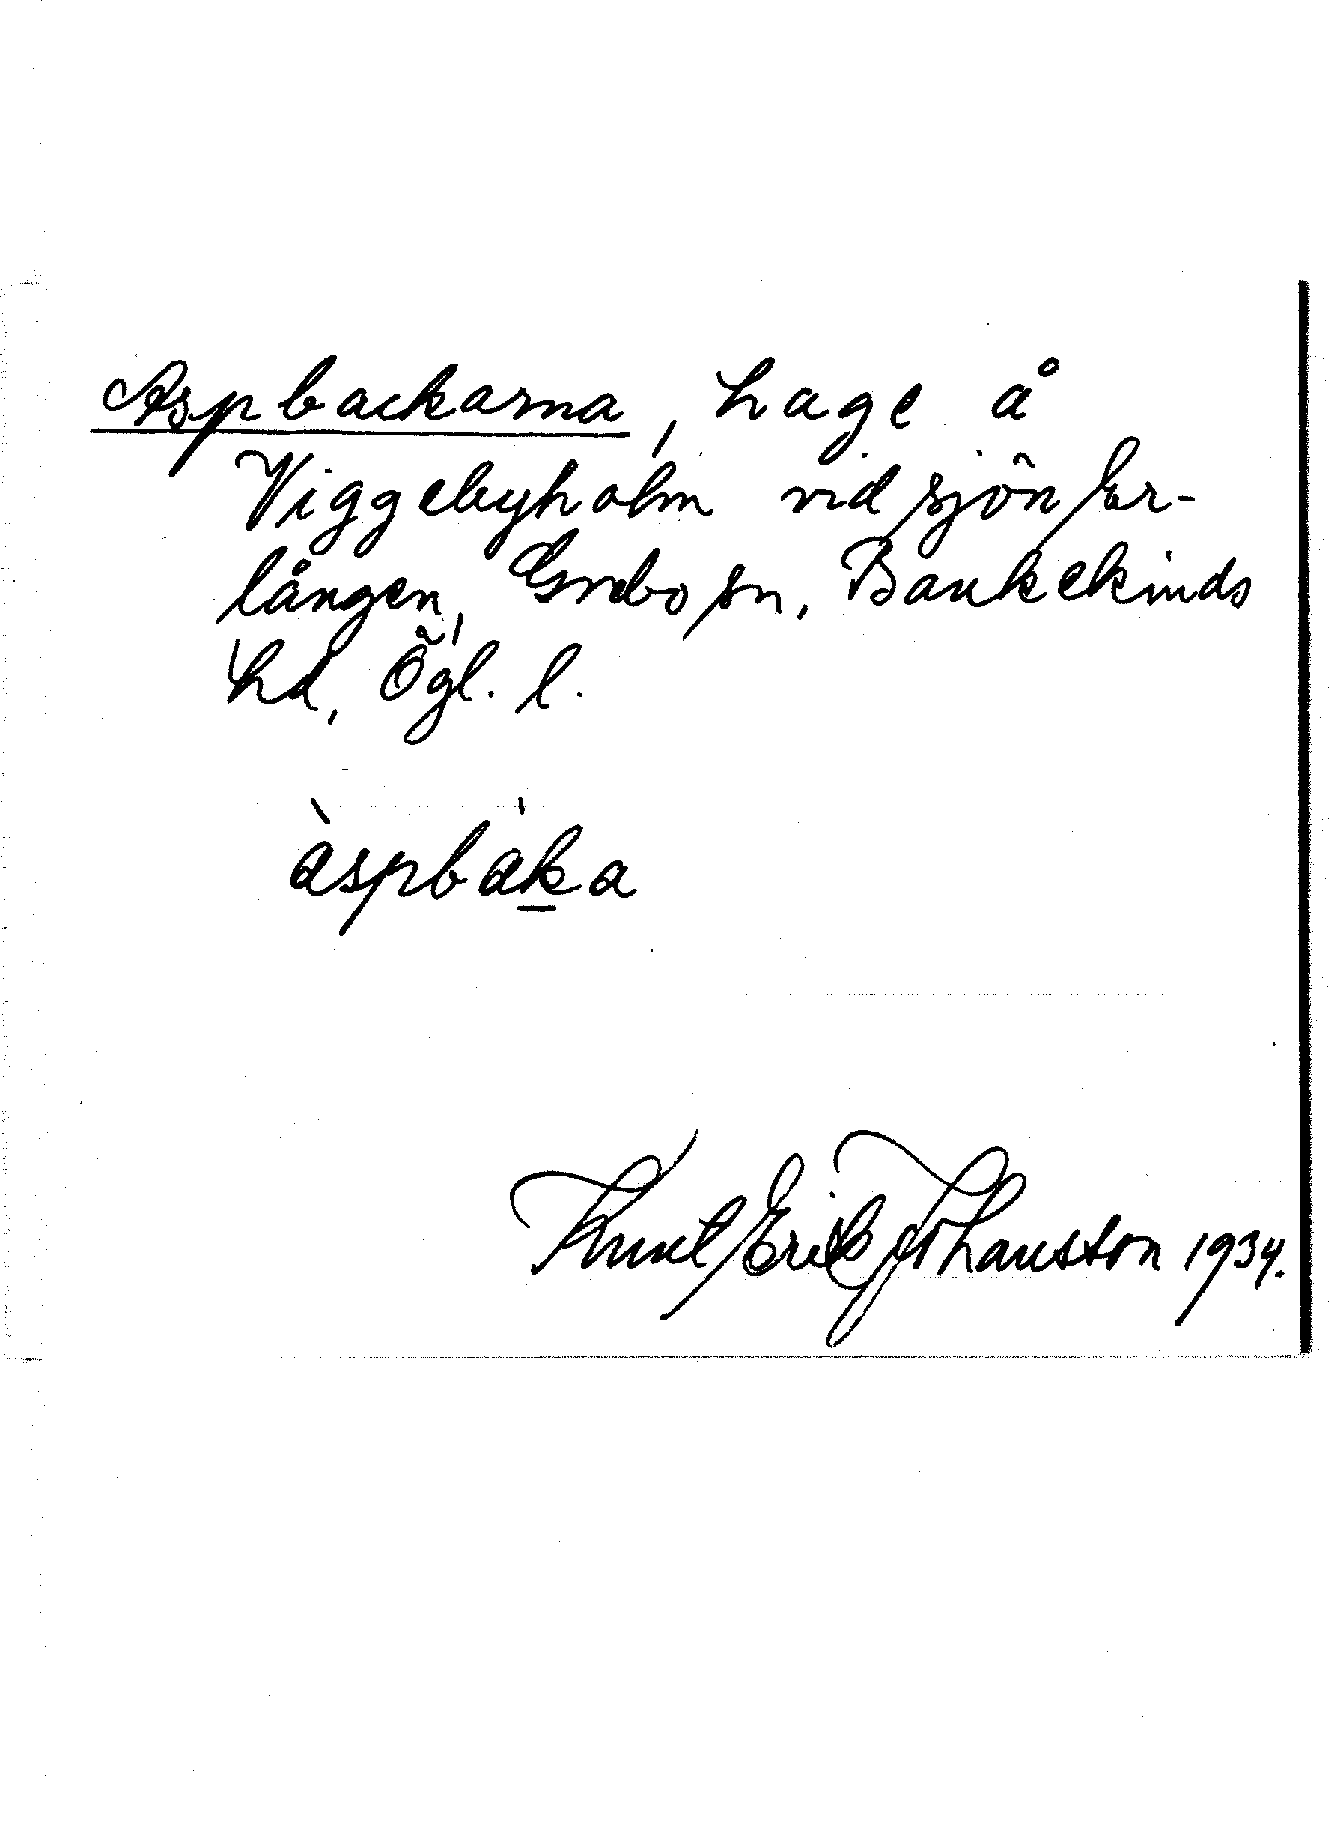 Aspbackarna, hage å
Viggebyholm vid sjön Er-
lången, Grebo sn, Bankekinds
hd, Ögl. l.
àspbàka
Knut Erik Johansson 1934.